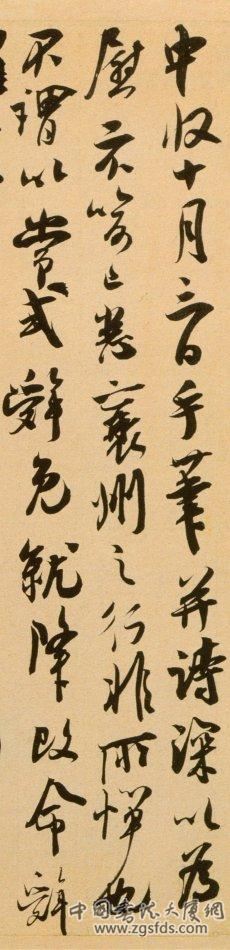 中收十月三日手筆并詩深以為
慰示喻已悉襄州之行非所憚
不謂以嘗式辭免就降改命辭
中國書法大厦網
www.zgsfds.com